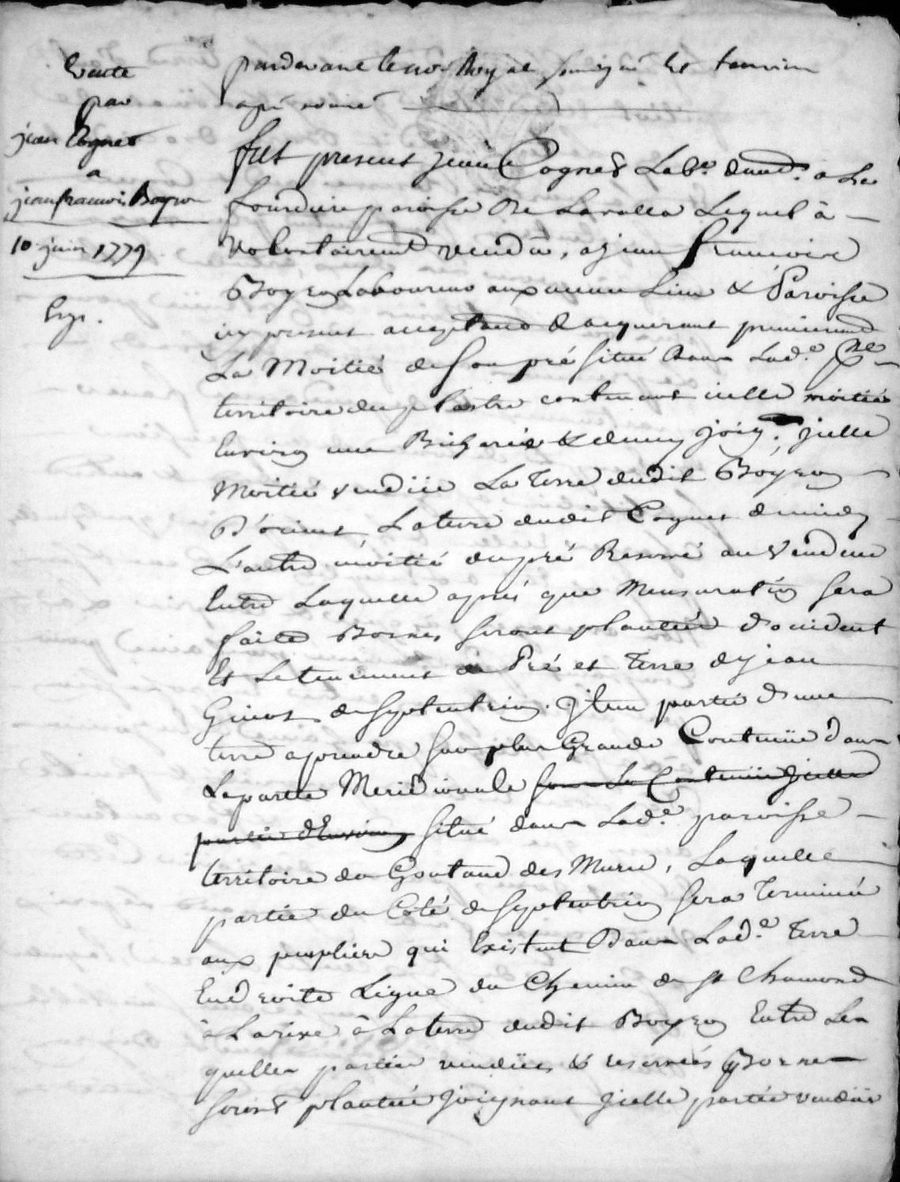 Vente
par
jean Cognet
a
jean francois Boyron
10 juin 1779
Exp.
pardevant le no.re Royal soussigné Et temoins
apres nommés
fut present jean Cognet Lab.r dem.t a La
paroisse De Lavalla Lequel à
volontairement vendu, a jean francoise
Boyron Laboureur aux meme Lieu & Paroisse
icy present acceptant & acquerant premierement
La Moitié de Son pré situé dans Lad.e p.sse
territoire du contenant icelle moitié
Environ une Bicherée & demy joig.t jcelle
Moitié vendüe La Terre dudit Boyron
D'orient, La terre dudit Cognet de midy
L'autre moitié du pré Reservé au Vendeur
Entre Laquelle aprés que Mensuration sera
faite Bornes seront plantées d'occident
Et Le tenement de Pré et Terre de jean
de septentrion jtem partie d'une
terre a prendre sur plus Grande Contenüe dans
La partie Meridionale sous La Contenüe jcelle
partie d'Environ situé dans Lad.e paroisse
territoire du Goutand des Mures, Laquelle
partie du Coté de septentrion sera Terminée
aux peupliers qui Existent Dans Lad.e Terre
En droite Ligne du Chemin de St Chamond
à Larive à La terre dudit Boyron Entre Les
quelles parties vendües & reservées Bornes
seront plantées joignant jcelle partie vendüe